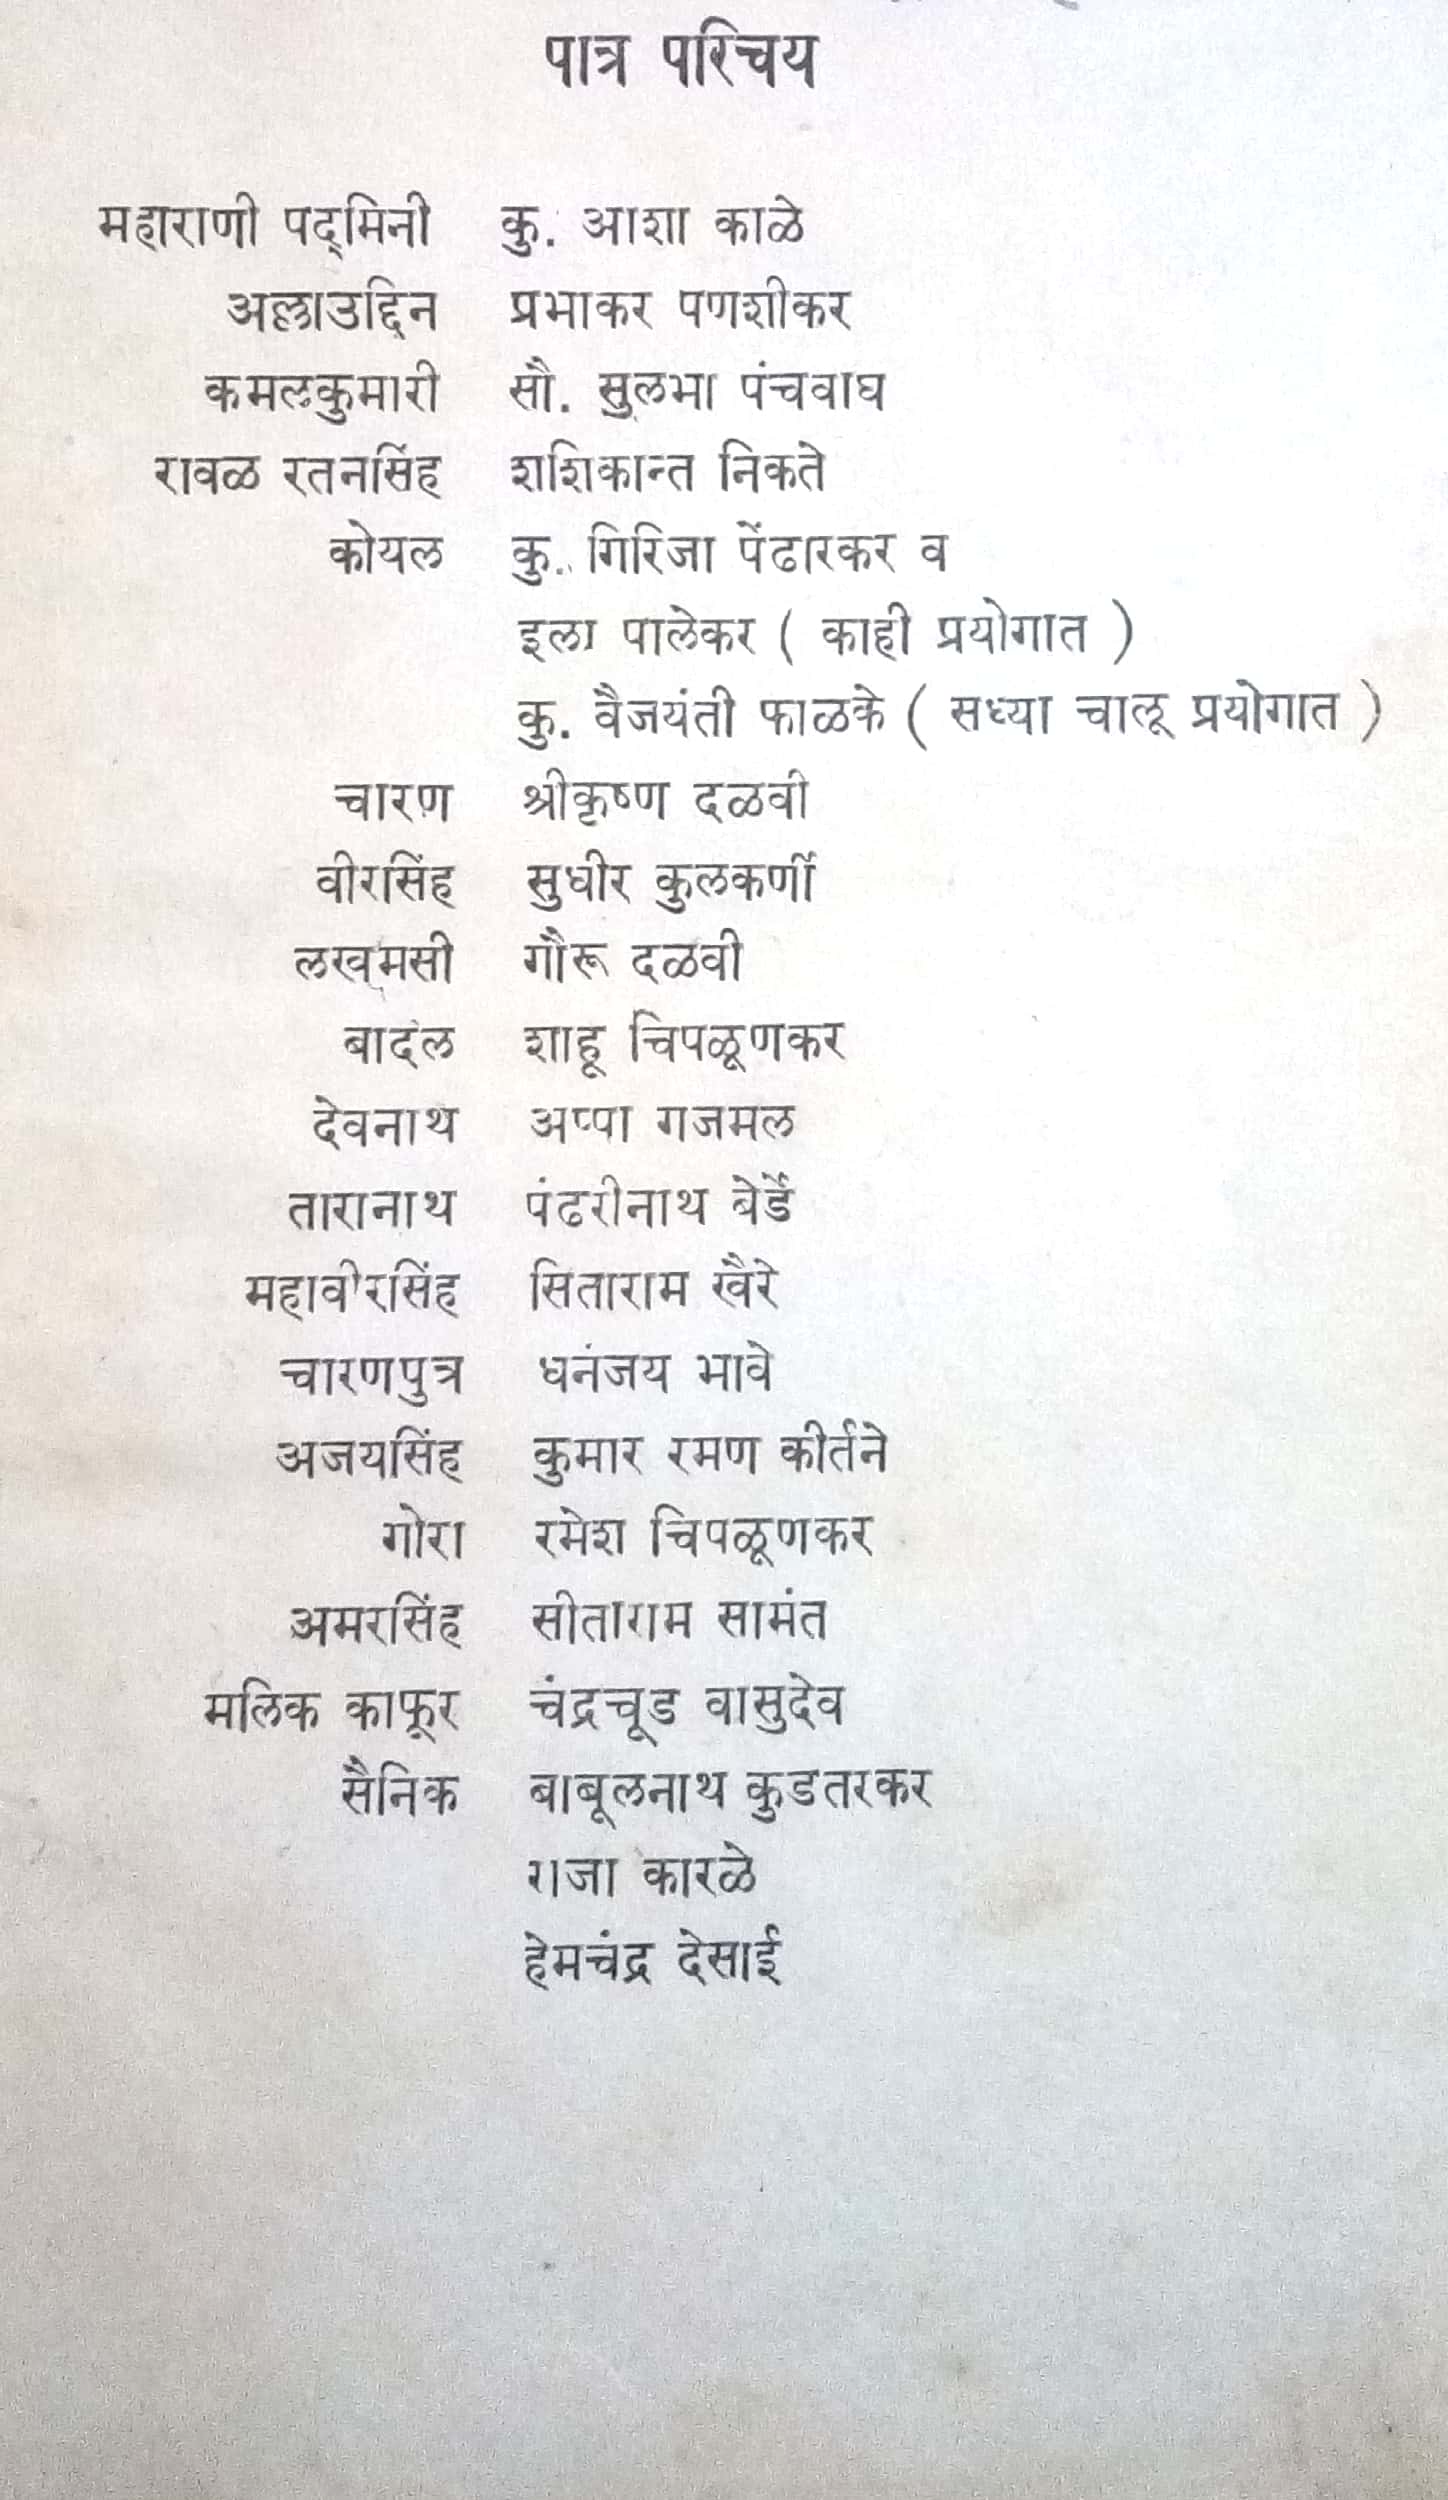 पात्र परिचय
महाराणी पद्‌मिनी कु. आशा काळे
अल्लाउद्दिन प्रभाकर पणशीकर
कमलकुमारी सौ. सुलभा पंचवाघ
रावळ रतनसिंह शशिकान्त निकते
कोयल कु. गिरिजा पेंढारकर व
इला पालेकर ( काही प्रयोगात )
कु. वैजयंती फाळके ( सध्या चालू प्रयोगात )
चारण श्रीकृष्ण दळवी
वीरसिंह सुधीर कुलकर्णी
लखमसी गौरू दळवी
बादल शाहू चिपळूणकर
देवनाथ अप्पा गजमल
तारानाथ पंढरीनाथ बेर्डे
महावीरसिंह सिताराम खैरे
चारणपुत्र धनंजय भावे
अजयसिंह कुमार रमण कीर्तने
गोरा रमेश चिपळूणकर
अमरसिंह सीताराम सामंत
मलिक काफूर चंद्रचूड वासुदेव
सैनिक बाबूलनाथ कुडतरकर
राजा कारळे
हेमचंद्र देसाई